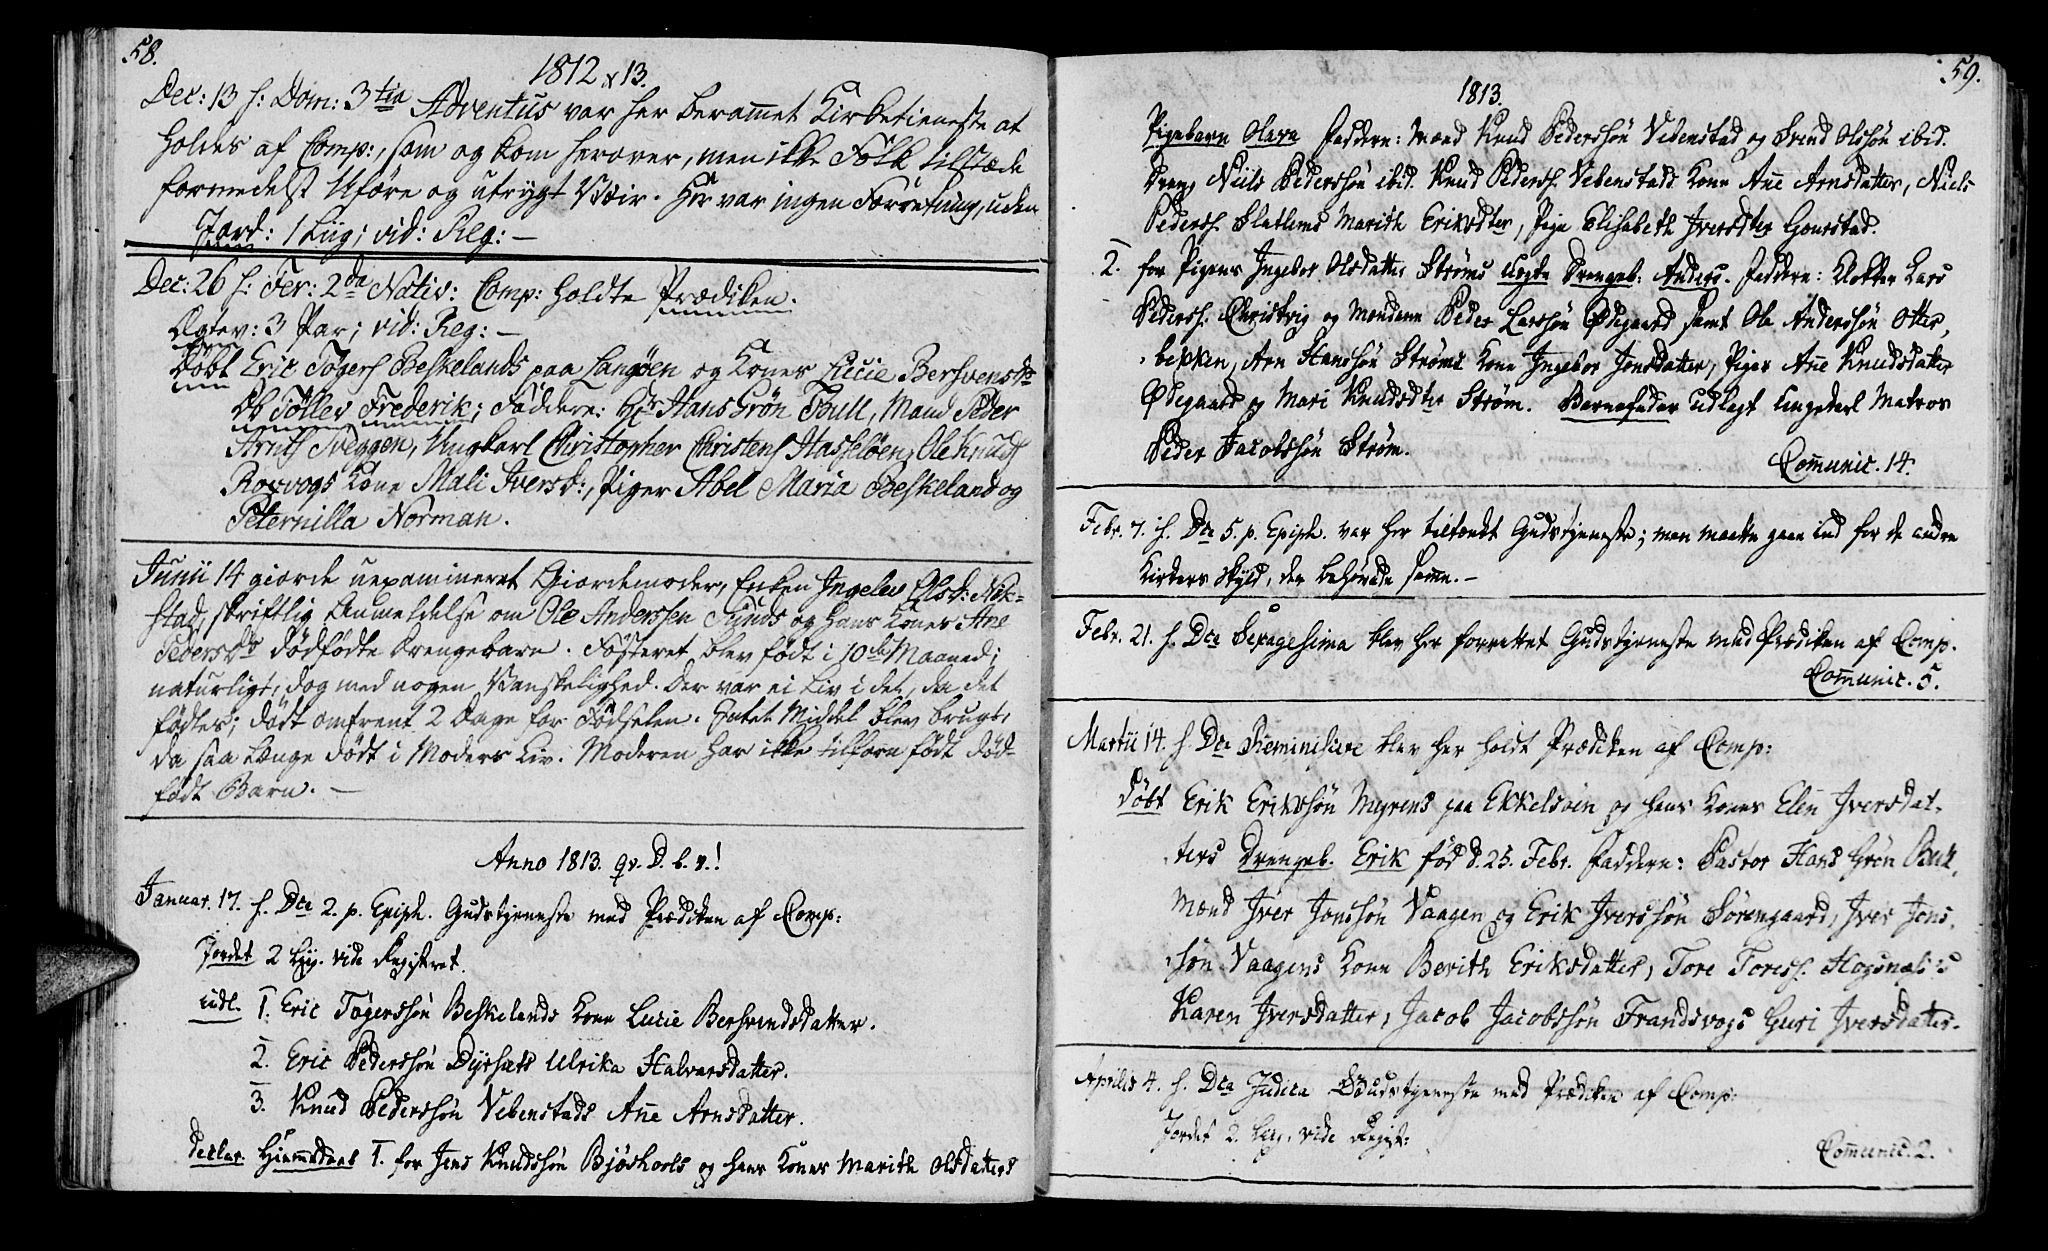 58.
1812 & 13.
Dec: 13 h: Dom: 3tia Adventus var her berammet Kirketieneste at
holdes af Comp:, som og kom herover, men ikke Folk tilstæde
formedelst Uføre og utrygt Veir. Her var ingen Forretning, uden
Jord: 1 Liig; vid: Reg: —
Dec: 26 h: Fer: 2da Nativ: Comp: holdte Prædiken.
Ægtev: 3 Par; vid: Reg: —
Døbt Eric Togers Beskelands paa Langøen og Kones Lucie Bersvensdr
Db Tølløv Frederik; Faddere: Hr Hans Grøn Bull, Mand Peder
Arnts Sveggen, Ungkarl Christopher Christens Hasseløen, Ole Knuds
Roxvogs Kone Mali Iversd:, Piger Abel Maria Beskeland og
Peternilla Norman.
Junii 14 giorde uexamineret Giordemoder, Enken Ingelev Olsd:
stad, skriftlig Anmeldelse om Ole Anderssen Sunds og hans Kones Ane
Pedersdr dødfødte Drengebarn. Fosteret blev født i 10de Maaned;
naturligt; dog med nogen Vanskelighed. Der var ei Liv i det, da det
fødtes; dødt omtrent 2 Dage for Fødselen. Intet Middel blev brugt,
da saa længe dødt i Moders Liv. Moderen har ikke tilforn født død-
født Barn. —
Anno 1813. qv. D. b. v.!
Januar. 17. h. Dca 2. p. Epiph. Gudstjeneste med Prædiken af Comp:
Jordet 2 Liig. vide Registeret.
Udl. 1. Eric Togerssøn Beskelands Kone Lucie Bersvendsdatter.
2. Eric Pederssøn Dyrsæts Ulrika Halvorsdatter.
3. Knud Pederssøn Vebenstads Ane Arnsdatter.
Declar. Hiemmedaab 1. for Jens Knudssøn Bjøshools og hans Kones Marith Olsdatters
59.
1813.
Pigebarn Olava Faddere: Mænd Knud Pederssøn Vebenstad og Svend Olssøn ibid.
Dreng Niels Pederssøn ibid. Knud Pederss. Vebenstads Kone Ane Arnsdatter, Niels
Pederss. Slatlems Marith Eriksdter, Pige Elisabeth Iversdter Gourstad.
2. for Pigens Ingebor Olsdatter Strøms uægte Drengeb: Anders. Faddere: Klokker Lars
Pederss. Christvig og Mændene Peder Larssøn Ødegaard samt Ole Anderssøn Otter-
bekken, Arn Hanssøn Strøms Kone Ingebor Jonsdatter, Piger Ane Knudsdatter
Ødegaard og Mari Knudsdter Strøm. Barnefader udlagt Ungekarl Matros
Peder Jacobssøn Strøm.
Communic. 14.
Febr. 7. h. Dca 5. p. Epiph. var her tiltænkt Gudstjeneste; men maatte gaae ind for de andre
Kirkers Skyld, der behøvede samme. —
Febr. 21. h. Dca Sexagesima blev her forrettet Gudstjeneste med Prædiken af Comp.
Communic. 5.
Martii 14. h. Dca Reminiscere blev her holdt Prædiken af Comp:
Døbt Erik Erikssøn Myrens paa Ekkelsøen og hans Kones Elen Iversdat-
ters Drengeb. Erik fød d. 25. Febr. Faddere: Pastor Hans Grøn Bull,
Mænd Iver Jonssøn Vaagen og Erik Iverssøn Sørengaard, Iver Jons-
søn Vaagens Kone Berith Eriksdatter, Tore Toress. Hogsnæs's
Karen Iversdatter, Jacob Jacobssøn Frandsvogs Guri Iversdatter.
Aprilis 4. h. Dca Judica Gudstjeneste med Prædiken af Comp:
Jordet 2. Liig, vide Regist:
Communic. 2.